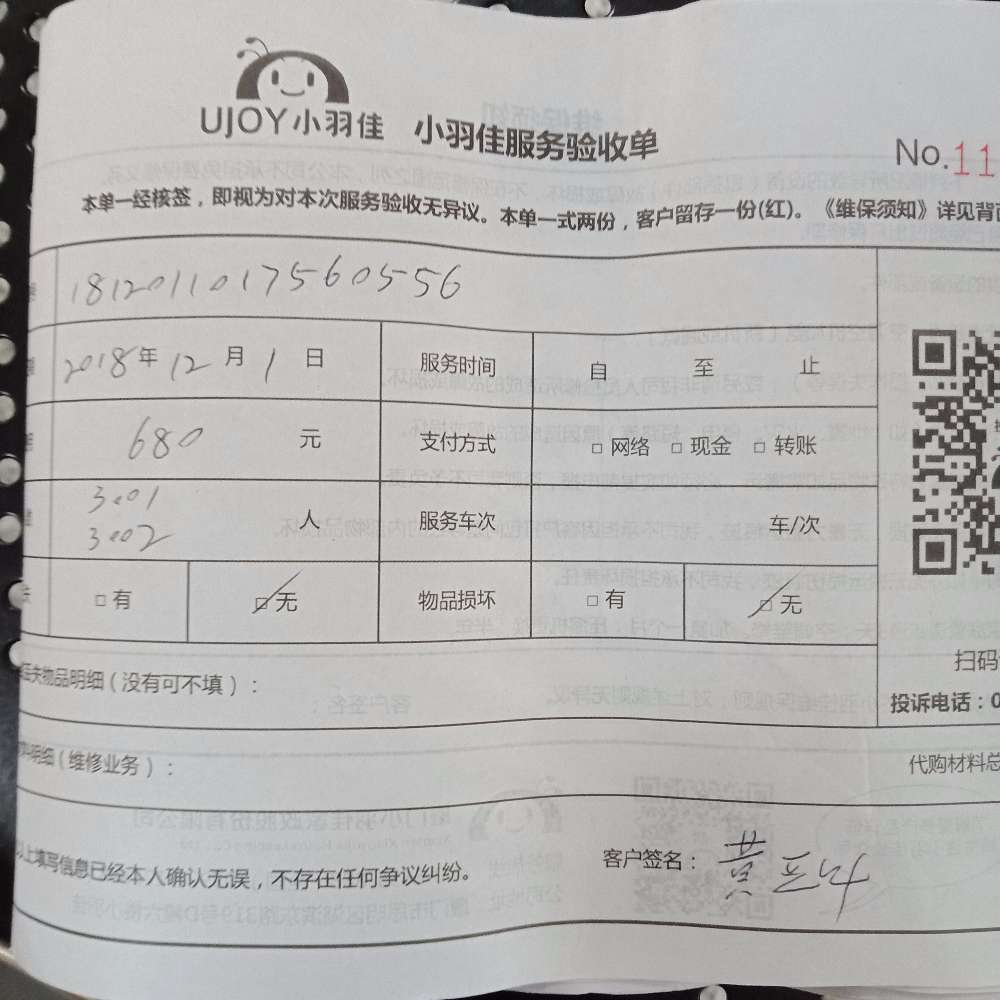 UJOY小羽佳 小羽佳服务验收单
No.11
本单一经核签，即视为对本次服务验收无异议。本单一式两份，客户留存一份(红)。《维保须知》详见背
1812011017560556
2018年12月1日 服务时间 自 至 止
680 元 支付方式 □ 网络 □ 现金 □ 转账
3001
3002 人 服务车次 车/次
□ 有 □ 无 物品损坏 □ 有 □ 无
扫码
失物品明细（没有可不填）：
投诉电话：0
明细（维修业务）：
代购材料总
上填写信息已经本人确认无误，不存在任何争议纠纷。
客户签名：黄